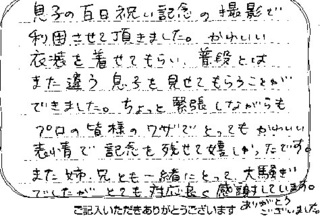 息子の百日祝い記念の撮影で
利用させて頂きました。かわいい
衣装を着せてもらい、普段とは
また違う息子を見せてもらうことが
できました。ちょっと緊張しながらも
プロの皆様のワザでとってもかわいい
表情で記念を残せて嬉しかったです。
また姉、兄とも一緒にとって、大騒ぎ
でしたがとても対応良く感謝しています。
ありがとう
ございました。
ご記入いただきありがとうございます